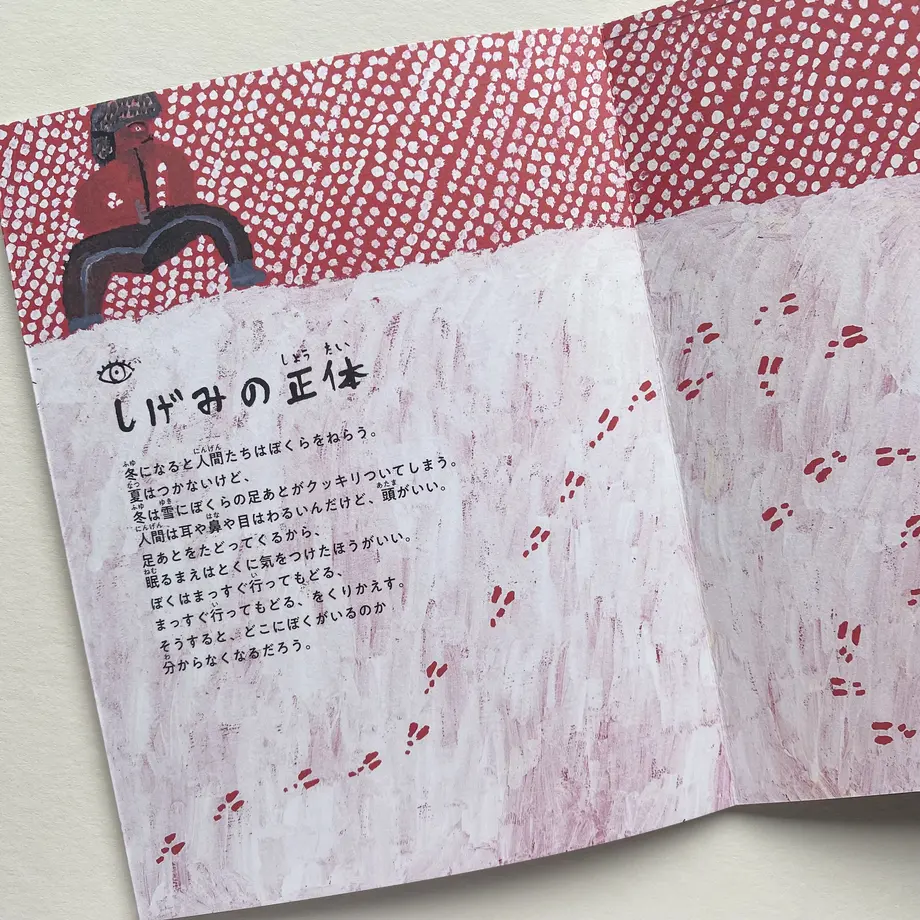 しげみの正体
しょう たい
冬になると人間たちはぼくらをねらう。
ふゆ にんげん
夏はつかないけど、
なつ
冬は雪にぼくらの足あとがクッキリついてしまう。
ふゆ ゆき
人間は耳や鼻や目はわるいんだけど、頭がいい。
にんげん はな あたま
足あとをたどってくるから、
眠るまえはとくに気をつけたほうがいい。
ねむ
ぼくはまっすぐ行ってもどる、
い
まっすぐ行ってもどる、をくりかえす。
い
そうすると、どこにぼくがいるのか
分からなくなるだろう。
わ